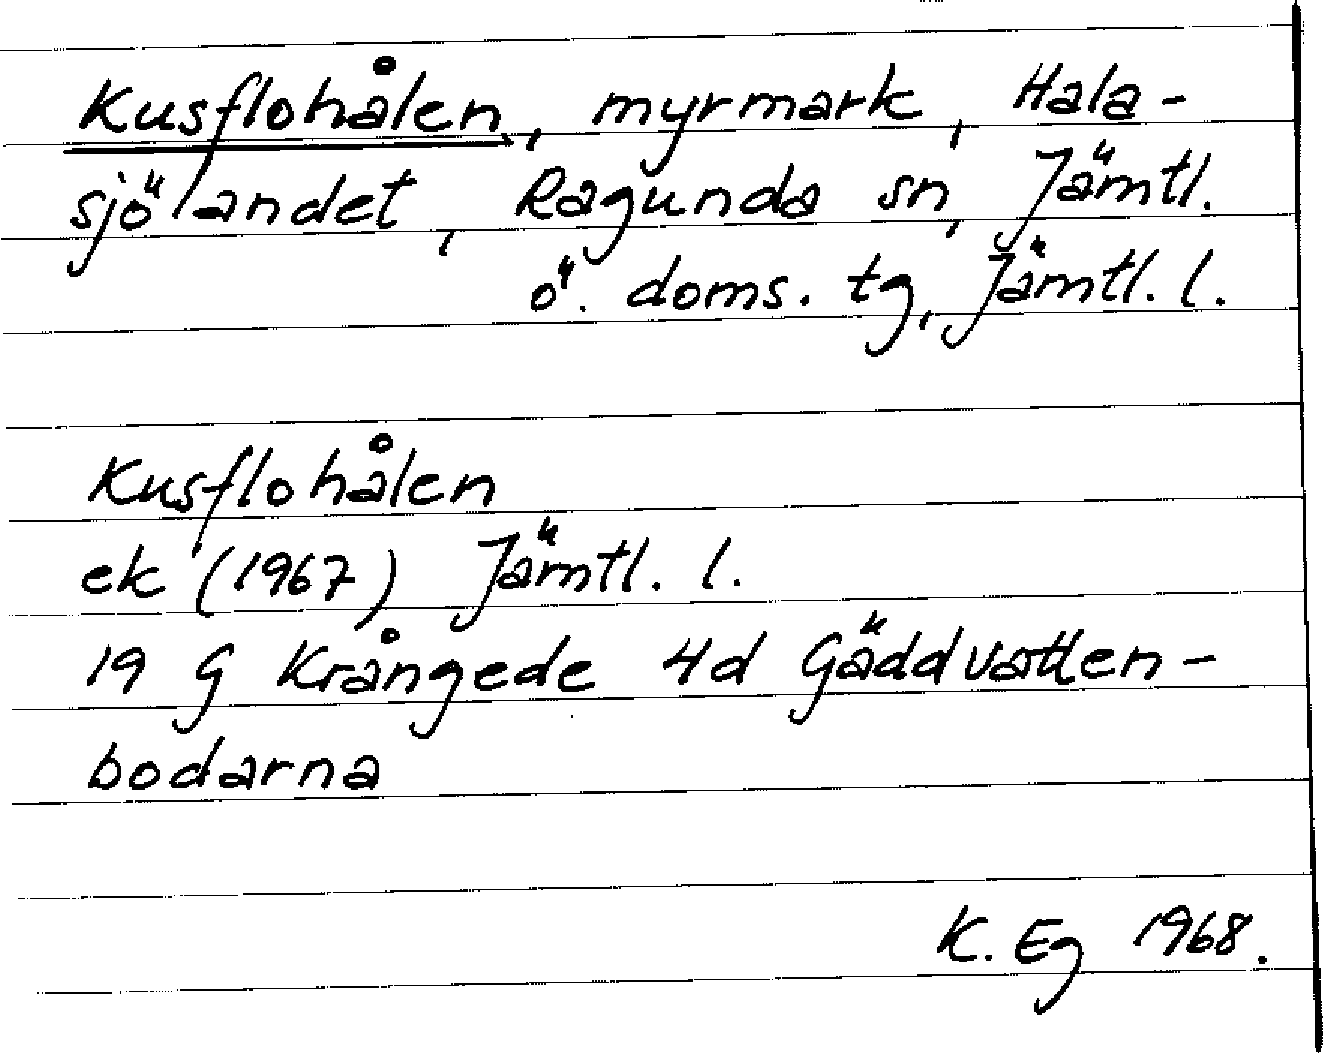 Kusflohålen, myrmark, Hala-
sjölandet, Ragunda sn, Jämtl.
ö. doms. tg, Jämtl. l.
Kusflohålen
ek (1967) Jämtl. l.
19 G Krångede 4d Gäddvatten-
bodarna
K. Eg 1968.